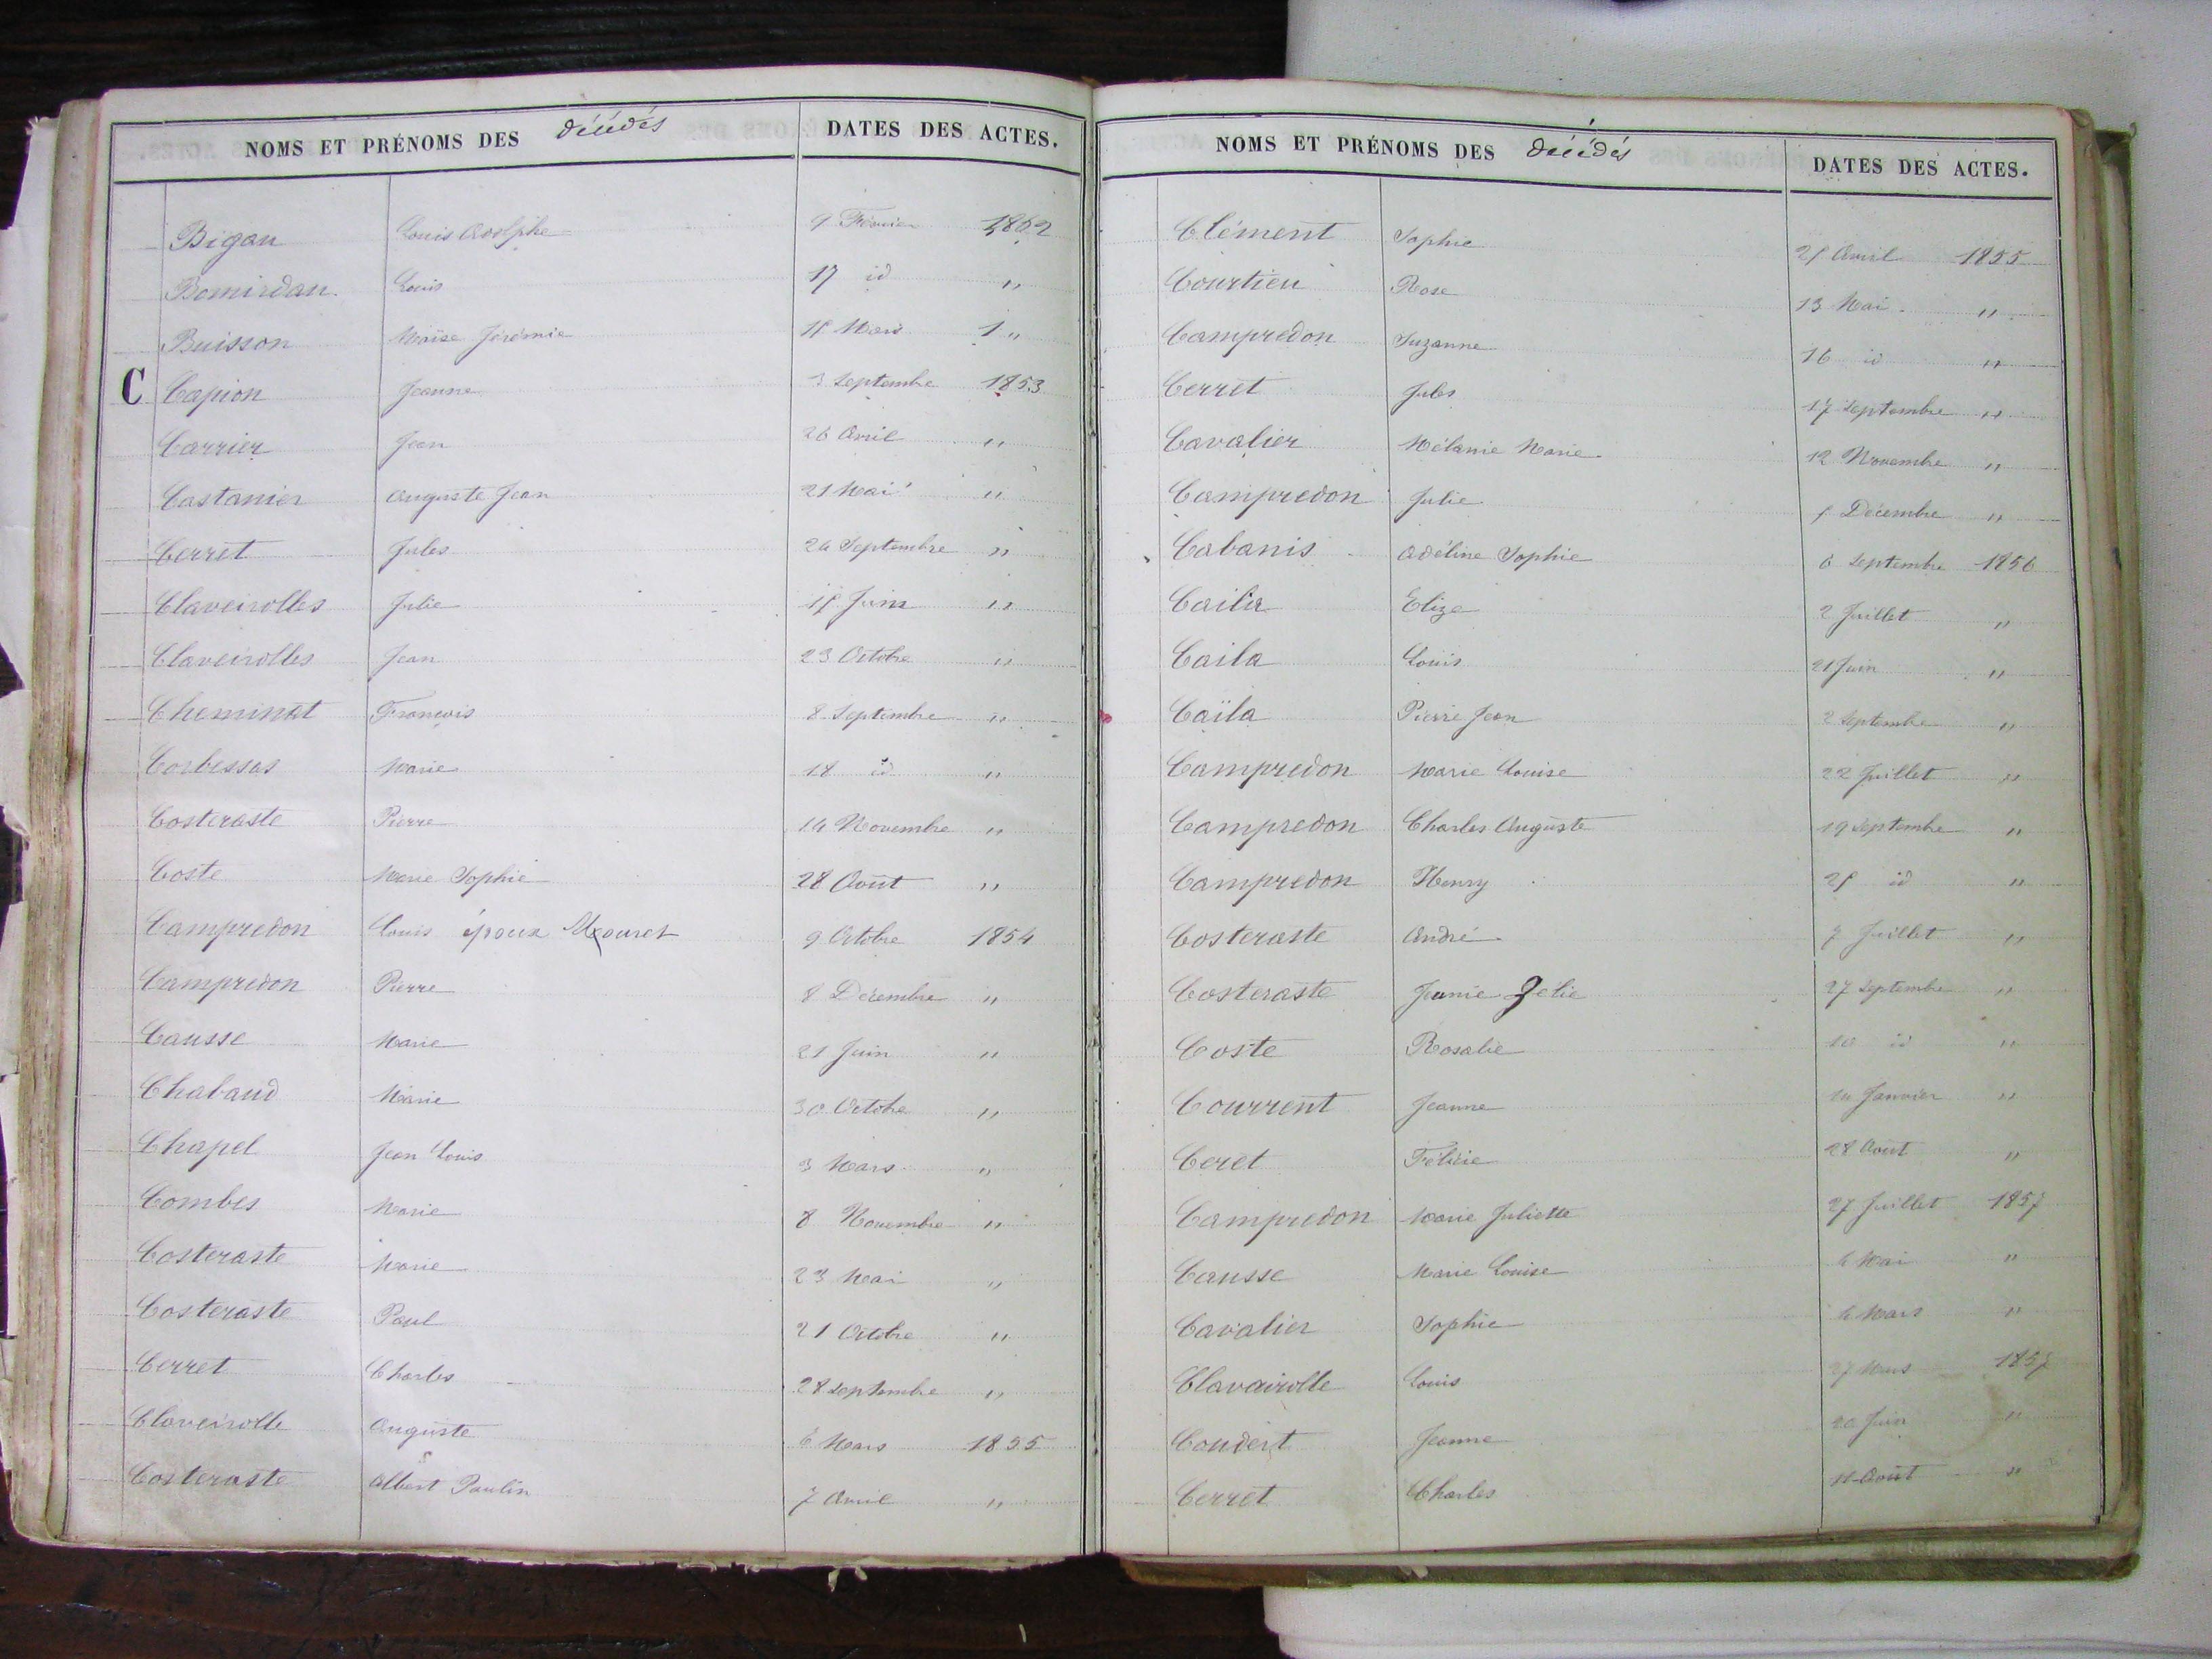 NOMS ET PRÉNOMS DES décédés DATES DES ACTES.
Bigau Louis Adolphe 9 Février 1862
Bomirdan. Louis 17 id "
Buisson Moïse Jérémie 18 Mars 1 "
C Capion Jeanne 3 Septembre 1853
Carrier Jean 26 Avril "
Castanier Auguste Jean 21 Mai "
Cerret Jules 24 Septembre "
Claveirolles Julie 18 Juin "
Claveirolles Jean 23 Octobre "
Cheminat François 8 Septembre "
Corbessas Marie 18 id "
Costeraste Pierre 14 Novembre "
Coste Marie Sophie 28 Août "
Campredon Louis époux 9 Octobre 1854
Campredon Pierre 8 Décembre "
Causse Marie 21 Juin "
Chabaud Marie 30 Octobre "
Chapel Jean Louis 3 Mars "
Combes Marie 8 Novembre "
Costeraste Marie 23 Mai "
Costeraste Paul 21 Octobre "
Cerret Charles 28 septembre "
Claveirolle Auguste 6 Mars 1855
Costeraste Albert Paulin 7 Avril "
NOMS ET PRÉNOMS DES décédés DATES DES ACTES.
Clément Sophie Avril 1855
Courtieu Rose 13 Mai "
Campredon Suzanne 16 id "
Cerret Jules 17 Septembre "
Cavalier Mélanie Marie 12 Novembre "
Campredon Julie Décembre "
Cabanis Adéline Sophie 6 Septembre 1856
Caila Elize 2 Juillet "
Caila Louis 21 Juin "
Caïla Pierre Jean 2 Septembre "
Campredon Marie Louise 22 Juillet "
Campredon Charles Auguste 19 Septembre "
Campredon Henry id "
Costeraste André 7 Juillet "
Costeraste Jeanie Zelie 27 Septembre "
Coste Rosalie 10 id "
Courrent Jeanne Janvier "
Ceret Félicie 28 Août "
Campredon Marie Juliette 27 Juillet 1857
Causse Marie Louise Mai "
Cavalier Sophie Mars "
Clavairolle Louis 27 Mars 1857
Coudert Jeanne 20 Juin "
Cerret Charles Août "